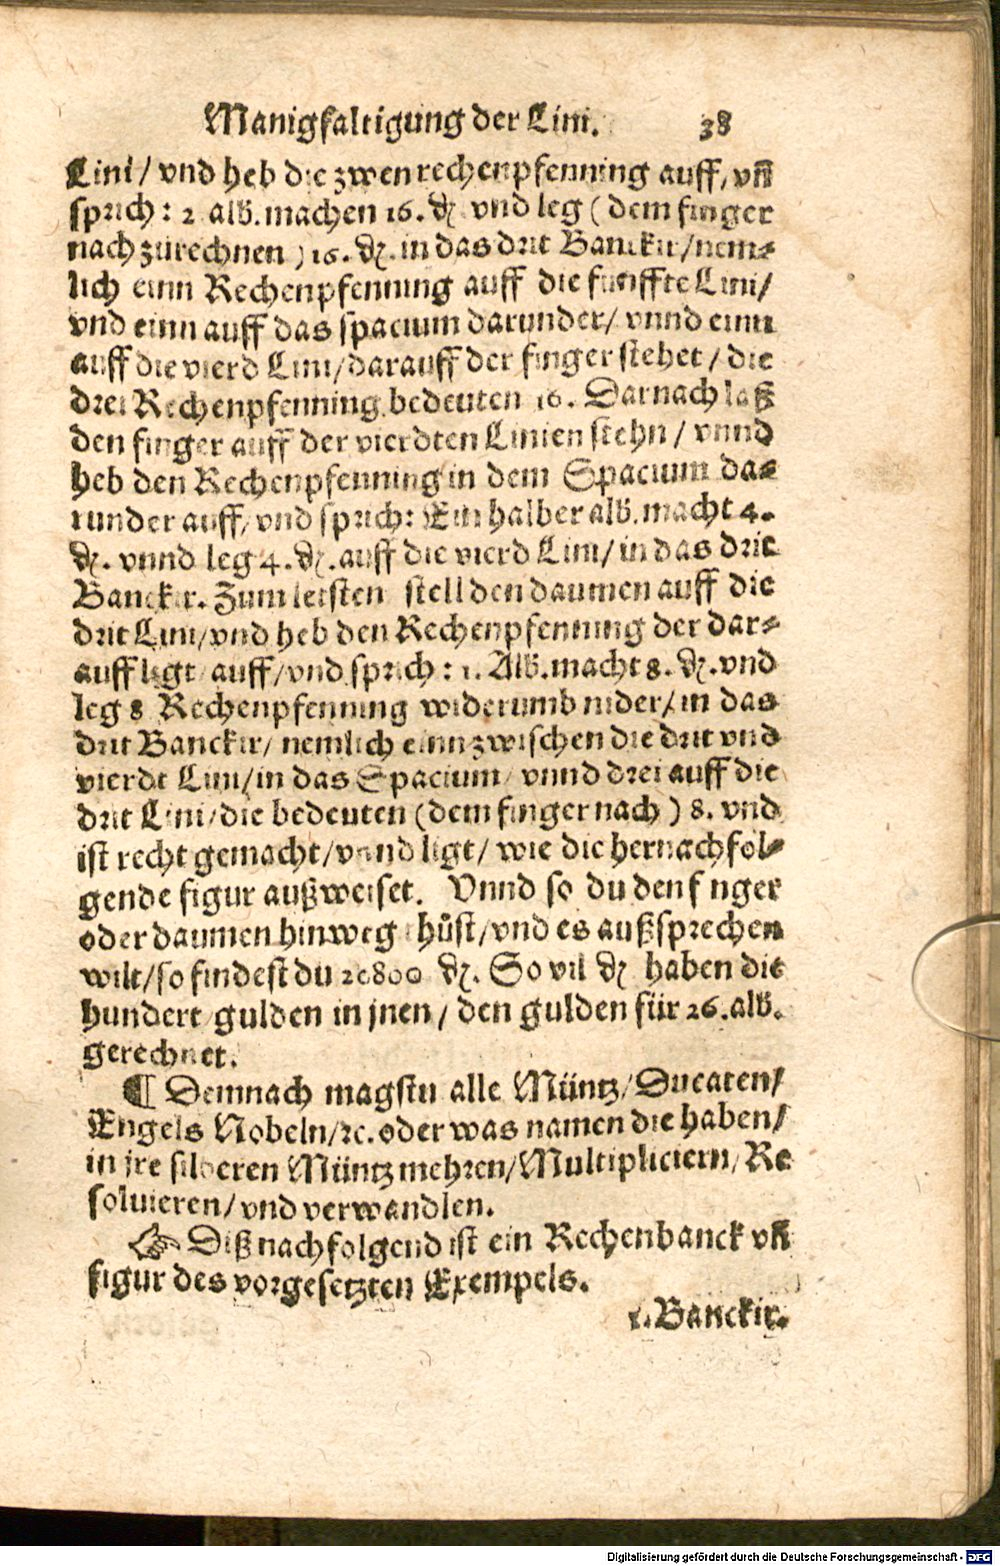 Manigfaltigung der Lini. 38
Lini/ vnd heb die zwen rechenpfenning auff, vñ
sprich: 2 alb. machen 16. ₰ vnd leg ( dem finger
nach zůrechnen ) 16. ₰. in das drit Banckir/nem⸗
lich einn Rechenpfenning auff die fünffte Lini/
vnd einn auff das spacium darunder/ vnnd einn
auff die vierd Lini/darauff der finger stehet/ die
drei Rechenpfenning bedeuten 16. Darnach laß
den finger auff der vierdten Linien stehn / vnnd
heb den Rechenpfenning in dem Spacium da⸗
runder auff, vnd sprich: Ein halber alb. macht 4.
₰. vnnd leg 4. ₰. auff die vierd Lini/ in das drit
Banckir. Zum letsten stell den daumen auff die
drit Lini/vnd heb den Rechenpfenning der dar⸗
auff ligt auff/vnd sprich: 1. Alb. macht 8. ₰. vnd
leg 8 Rechenpfenning widerumb nider/ in das
drit Banckir/ nemlich einn zwischen die drit vnd
vierde Lini/in das Spacium/ vnnd drei auff die
drit Lini/die bedeuten (dem finger nach ) 8. vnd
ist recht gemacht/vnnd ligt/ wie die hernachfol⸗
gende figur außweiset. Vnnd so du den finger
oder daumen hinweg thůst/vnd es außsprechen
wilt/so findest du 20800 ₰. So vil ₰ haben die
hundert gulden in jnen / den gulden für 26. alb.
gerechnet.
¶ Demnach magstu alle Müntz/Ducaten/
Engels Nobeln/ꝛc. oder was namen die haben/
in jre silberen Müntz mehren/Multipliciern/Re
soluieren/vnd verwandlen.
☞ Diß nachfolgend ist ein Rechenbanck vñ
figur des vorgesetzten Exempels.
1. Banckir.
Digitalisierung gefördert durch die Deutsche Forschungsgemeinschaft - DFG